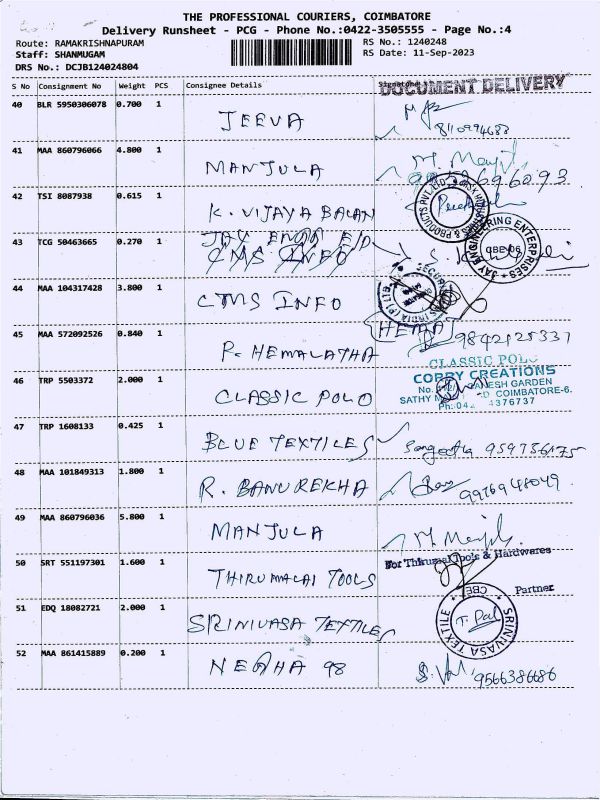 THE PROFESSIONAL COURIERS, COIMBATORE
Delivery Runsheet - PCG - Phone No.:0422-3505555 - Page No.:4
Route: RAMAKRISHNAPURAM RS No.: 1240248
Staff: SHANMUGAM RS Date: 11-Sep-2023
DRS No.: DCJB124024804
S No Consignment No Weight PCS Consignee Details
DOCUMENT DELIVERY
40 BLR 5950306078 0.700 1 JEEVA
41 MAA 860796066 4.800 1 MANJULA
42 TSI 8087938 0.615 1 K. VIJAYA BALAN
43 TCG 50463665 0.270 1 JAY ENGG E/D
CMS INFO
JAY ENGINEERING ENTERPRISES
CBE-06
44 MAA 104317428 3.800 1 CMS INFO
45 MAA 572092526 0.840 1 R. HEMALATHA HEMA 9842125331
46 TRP 5503372 2.000 1 CLASSIC POLO
CLASSIC POLO
CORRY CREATIONS
GANESH GARDEN
COIMBATORE-6.
4376737
47 TRP 1608133 0.425 1 BLUE TEXTILES Sangeetha
48 MAA 101849313 1.800 1 R. BANUREKHA 9976948049
49 MAA 860796036 5.800 1 MANJULA
50 SRT 551197301 1.600 1 THIRUMALAI TOOLS
For Thirumal Tools & Hardwares
Partner
51 EDQ 18082721 2.000 1 SRINIVASA TEXTILES
SRINIVASA TEXTILE
CBE
52 MAA 861415889 0.200 1 NEAHA 98 9566386686